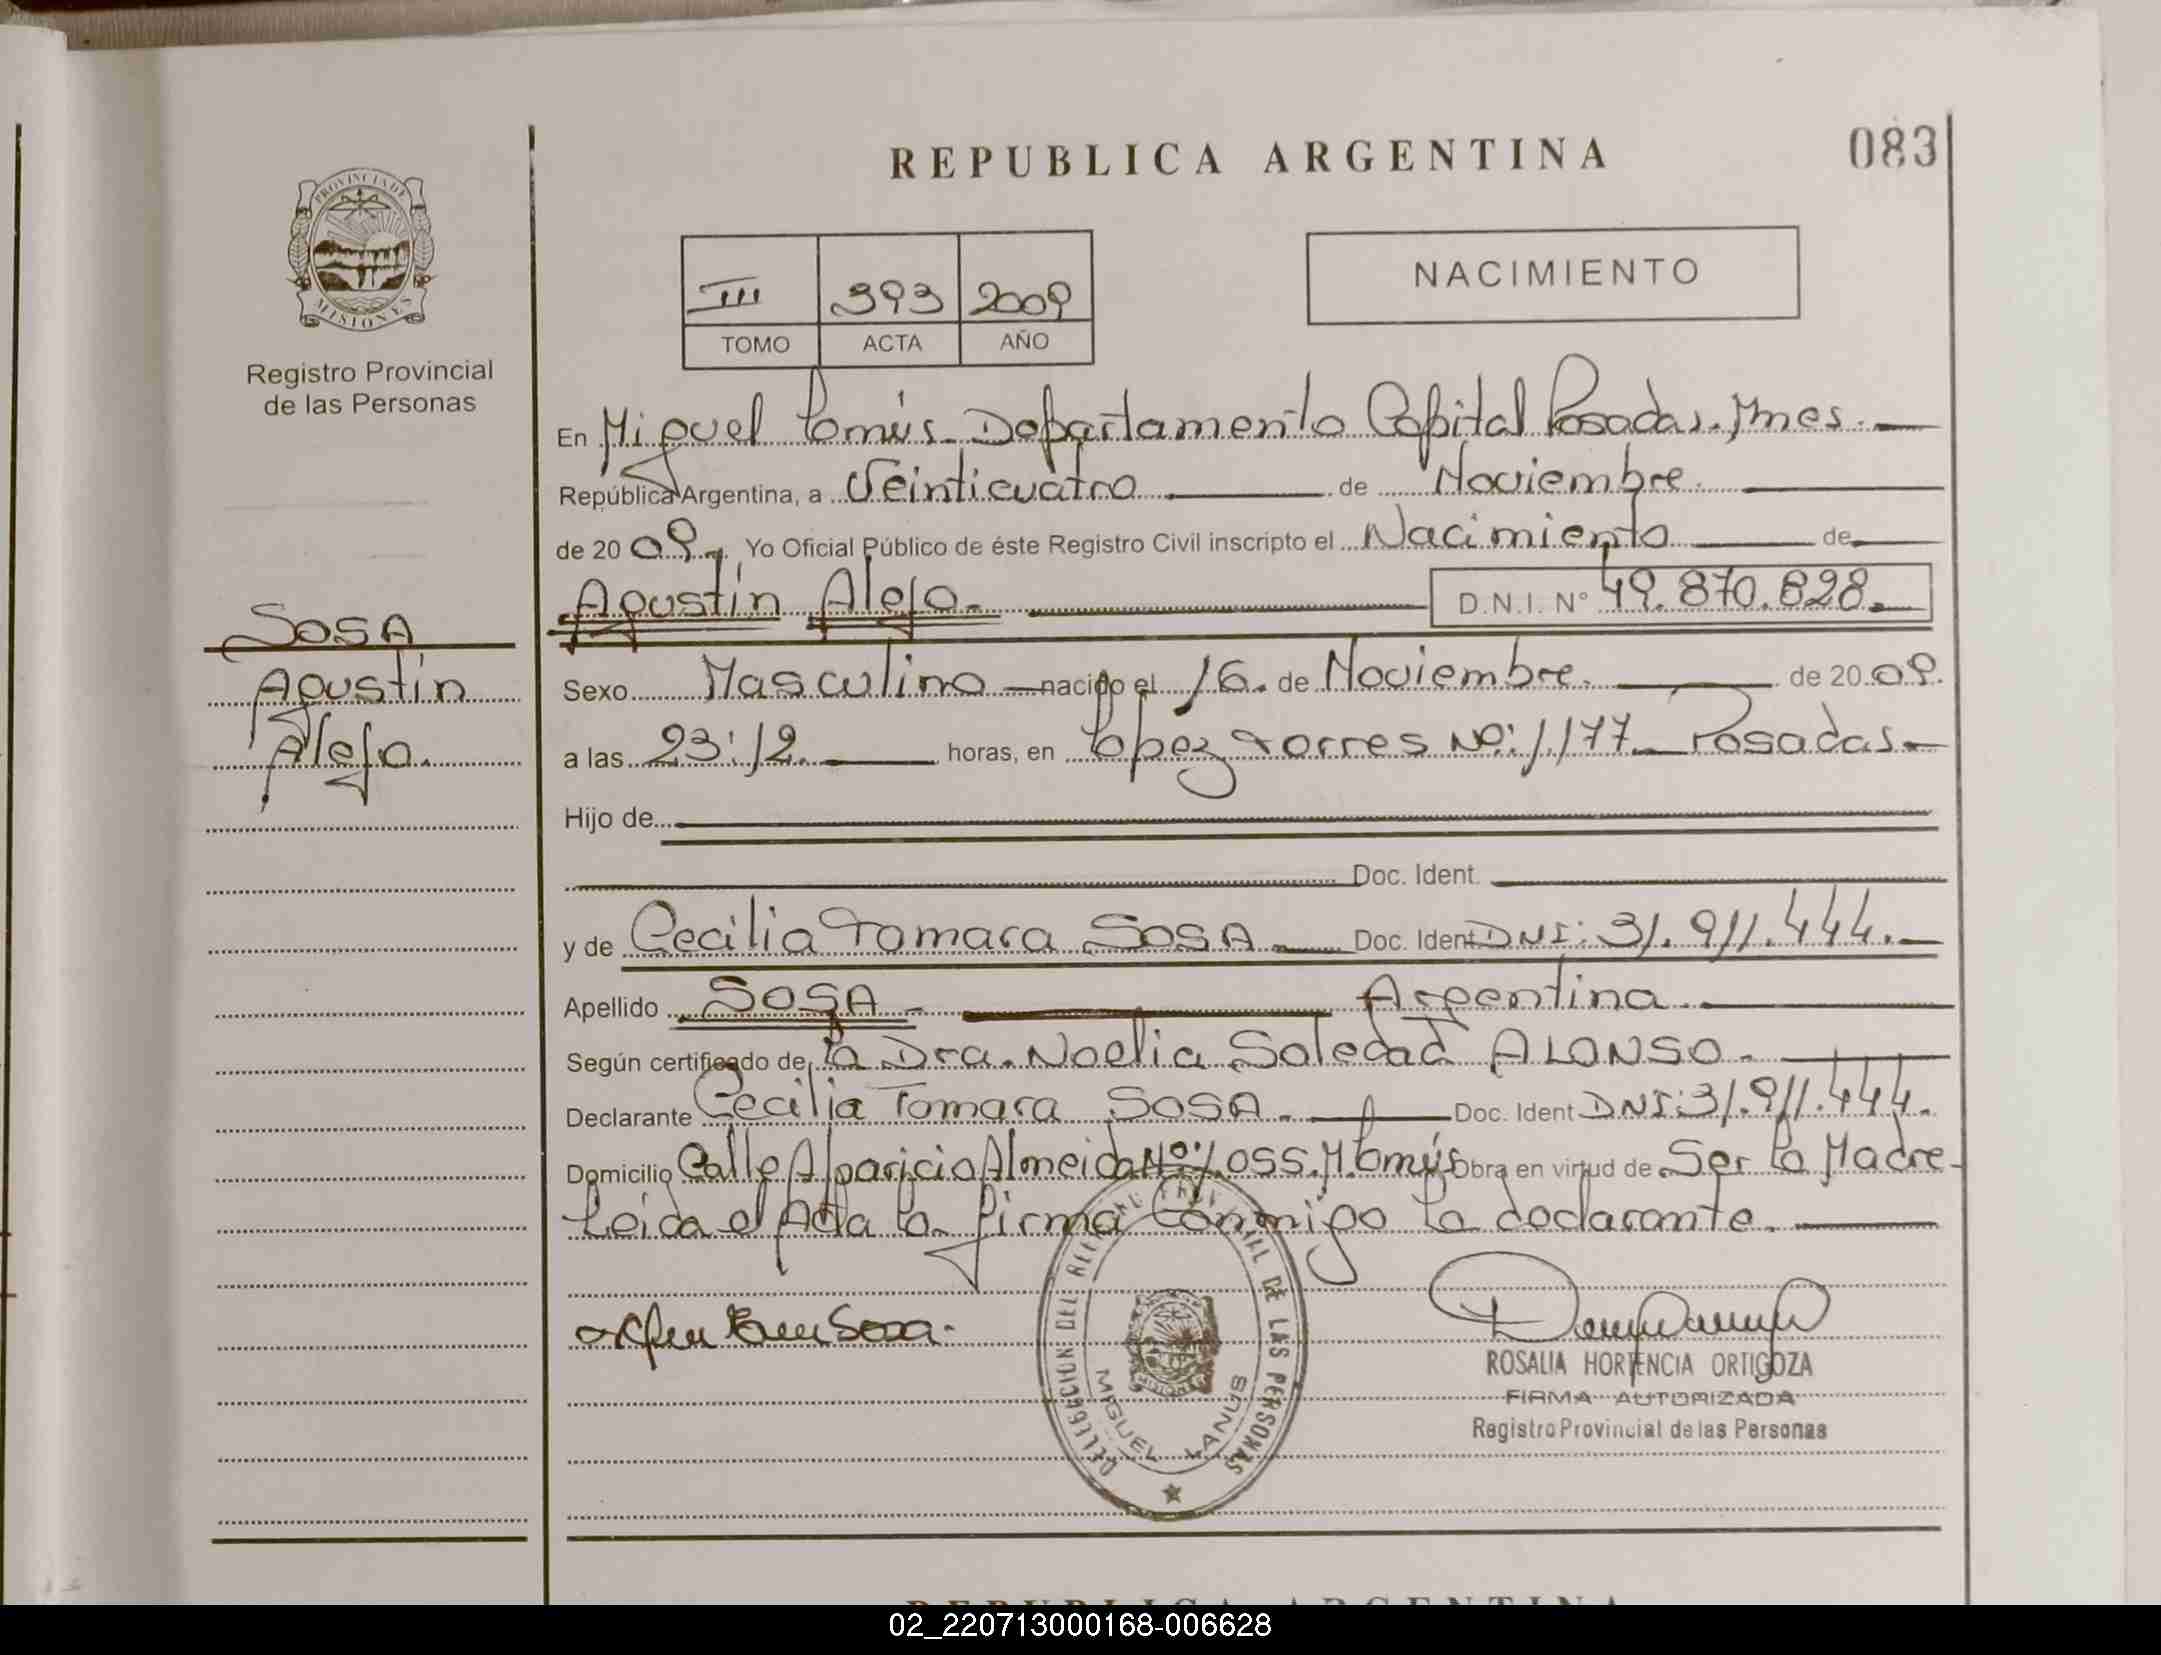 REPUBLICA ARGENTINA
083
PROVINCIA DE
MISIONES
Registro Provincial
de las Personas
III 393 2009
TOMO ACTA AÑO
NACIMIENTO
En Miguel Lanús Departamento Capital Posadas. Mnes.
República Argentina, a Veinticuatro de Noviembre.
de 20 09. Yo Oficial Público de éste Registro Civil inscripto el Nacimiento de
Agustín Alejo. D.N.I. N° 49.870.828.
SOSA
Agustín
Alejo.
Sexo Masculino nacido el 16. de Noviembre. de 20 09.
a las 23:12. horas, en López Torres Nº: 1.177 Posadas.
Hijo de
Doc. Ident.
y de Cecilia Tamara SOSA Doc. Ident DNI: 31.911.444.
Apellido SOSA Argentina.
Según certificado de la Dra. Noelia Soledad ALONSO.
Declarante Cecilia Tamara SOSA. Doc. Ident DNI: 31.911.444.
Domicilio Calle Aparicio Almeida Nº: 1.055. M. Lanús Obra en virtud de Ser la Madre
Leída el Acta la firma conmigo la declarante.
Sosa.
DELEGACION DEL REGISTRO PROVINCIAL DE LAS PERSONAS
MIGUEL LANUS
MISIONES
ROSALIA HORTENCIA ORTIGOZA
FIRMA AUTORIZADA
Registro Provincial de las Personas
REPUBLICA ARGENTINA
02_220713000168-006628